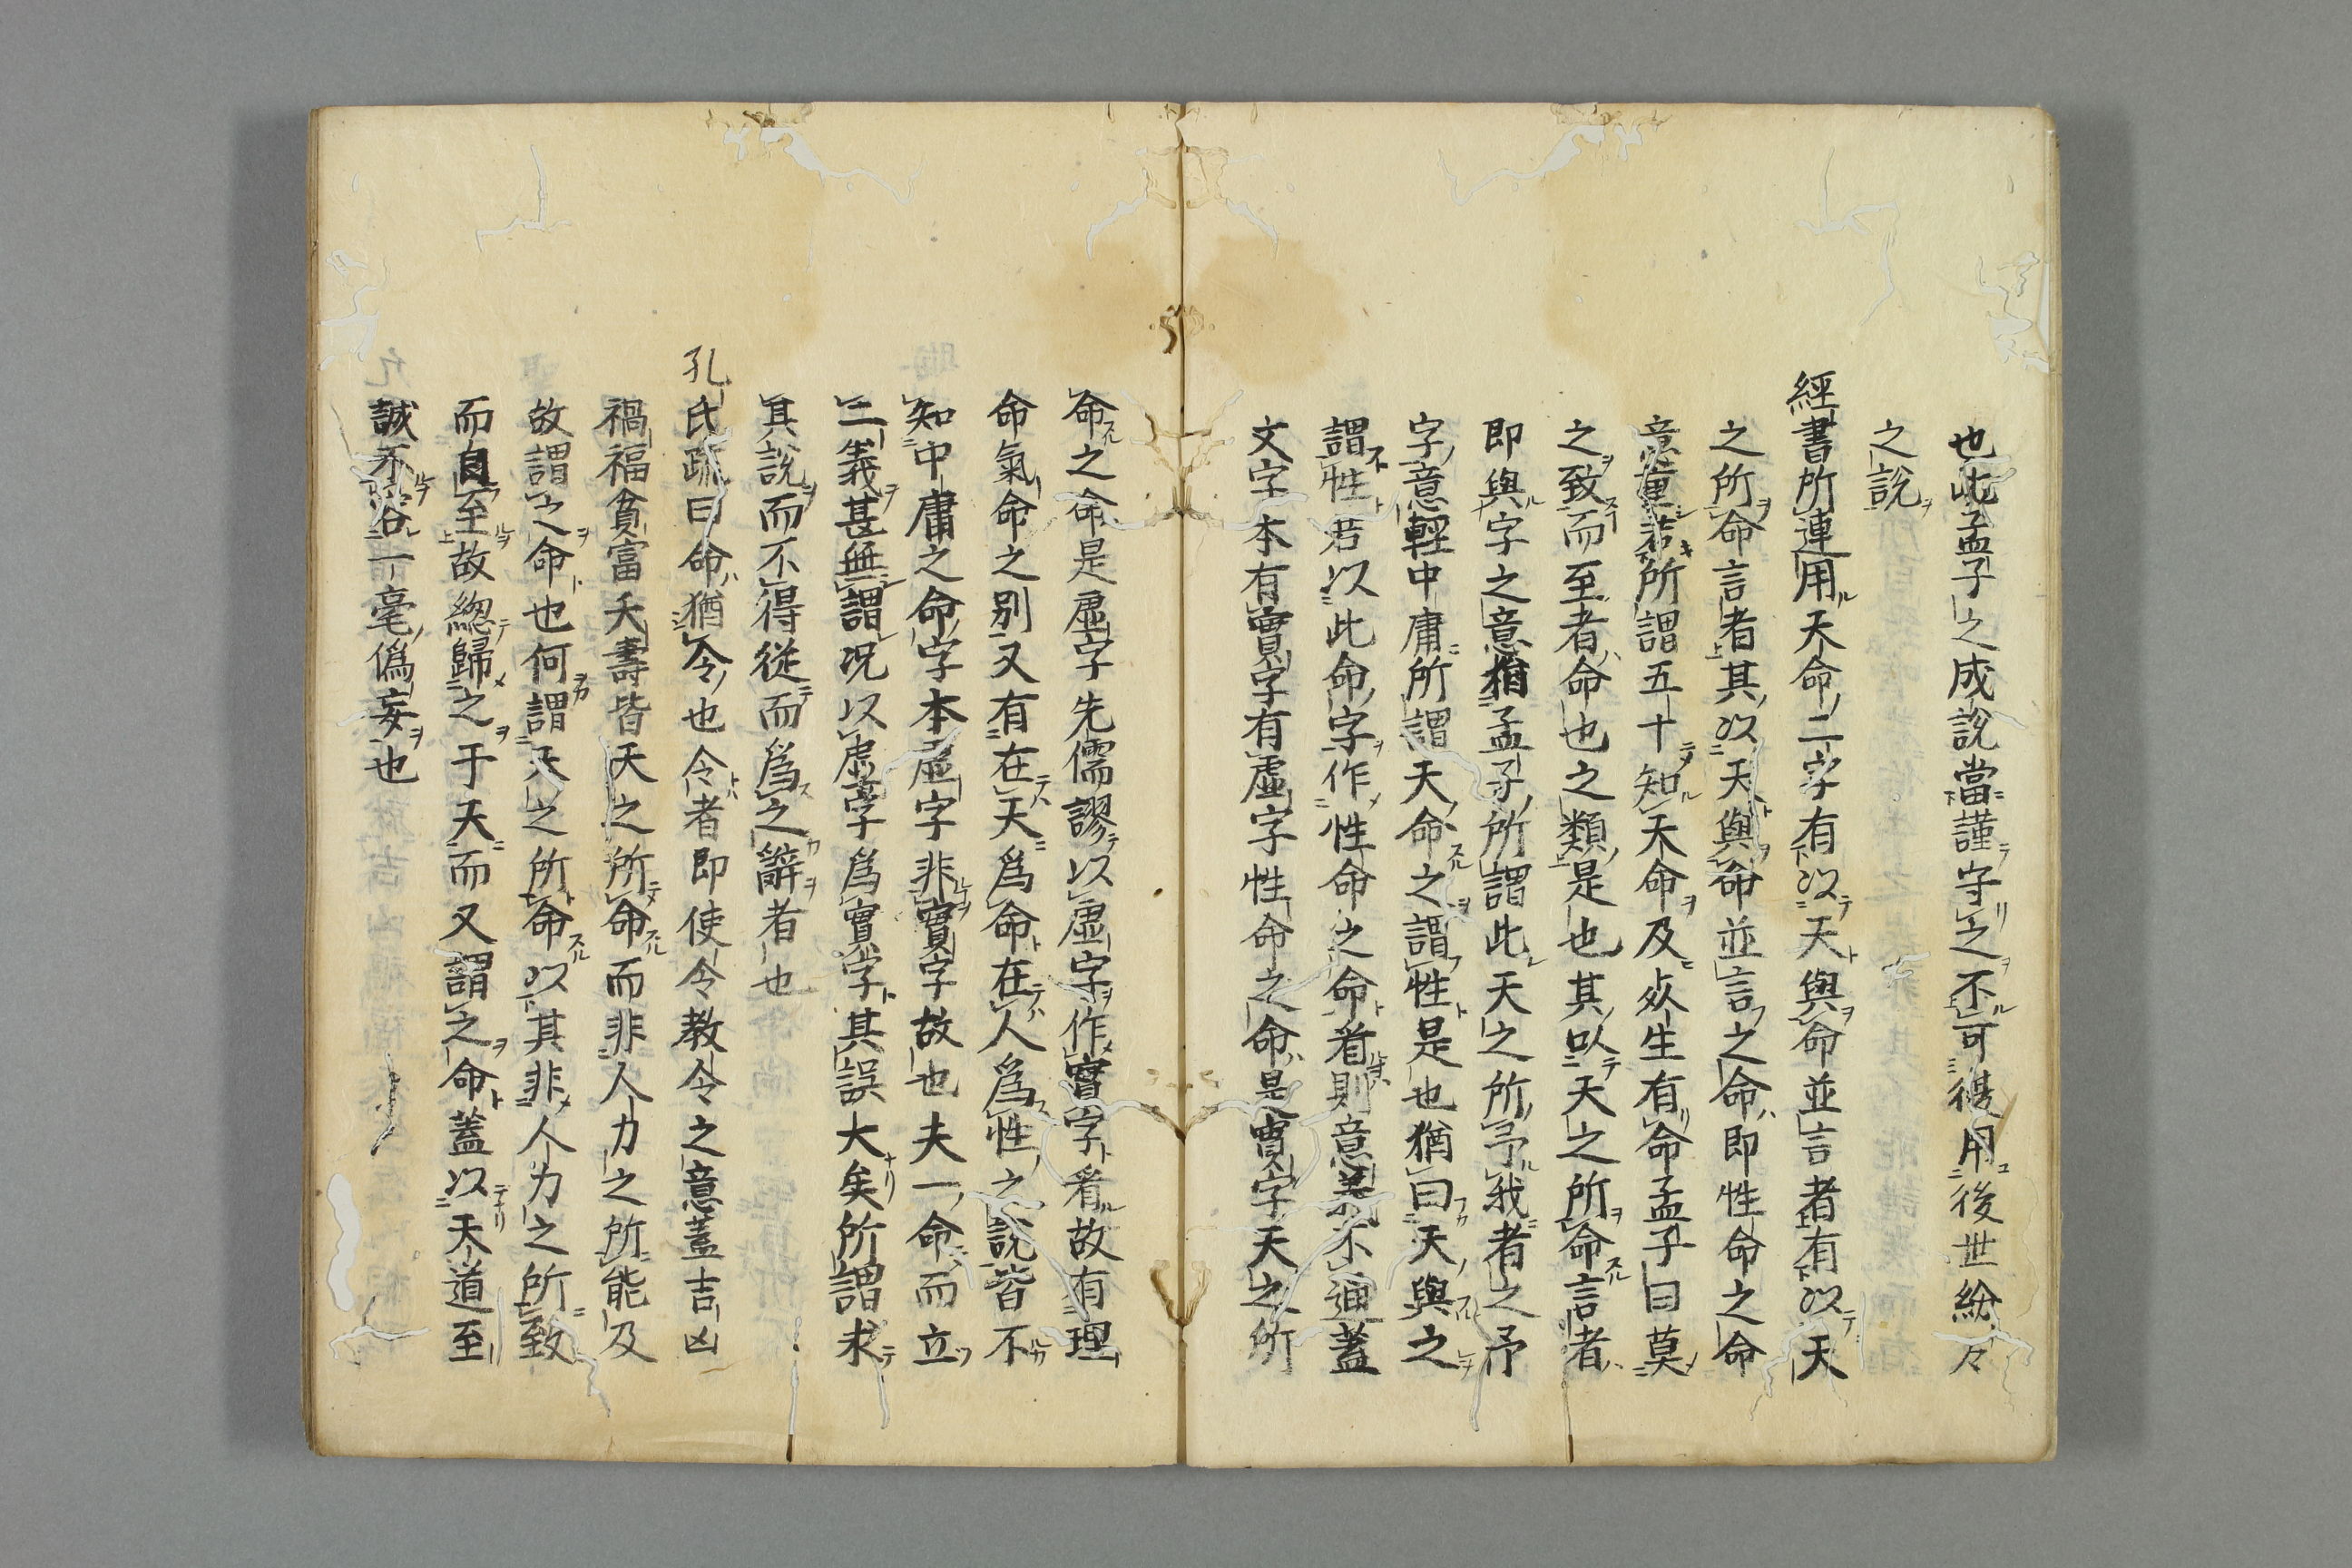 也此孟子之成說當謹守之不可復用後世紛々
之說
經書所連用天命二字有以天與命並言者有以天
之所命言者其以天與命並言之命即性命之命
意重若所謂五十知天命及死生有命孟子曰莫
之致而至者命也之類是也其以天之所命言者
即與字之意猶孟子所謂此天之所予我者之予
字意輕中庸所謂天命之謂性是也猶曰天與之
謂性若以此命字作性命之命看則意義不通蓋
文字本有實字有虛字性命之命是實字天之所
命之命是虛字先儒謬以虛字作實字看故有理
命氣命之別又有在天爲命在人爲性之說皆不
知中庸之命字本虛字非實字故也夫一命而立
二義甚無謂況以虛字爲實字其誤大矣所謂求
其說而不得從而爲之辭者也
孔氏疏曰命猶令也令者即使令教令之意蓋吉凶
禍福貧富夭壽皆天之所命而非人力之所能及
故謂之命也何謂天之所命以其非人力之所致
而自至故總歸之于天而又謂之命蓋以天道至
誠不容一毫僞妄也